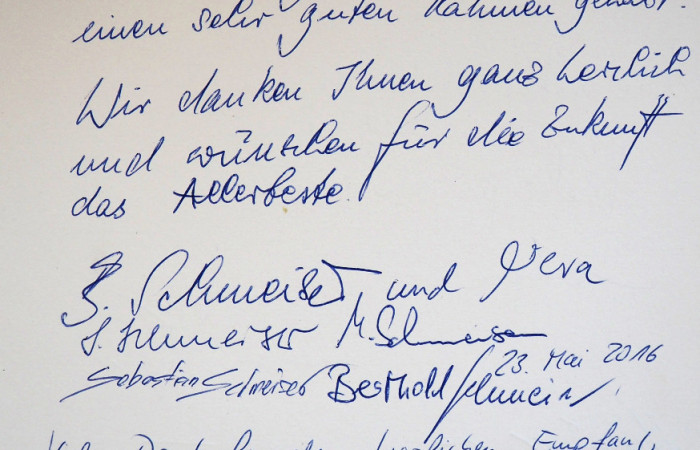 einen sehr guten Rahmen gehabt.
Wir danken Ihnen ganz herzlich
und wünschen für die Zukunft
das Allerbeste.
B. Schmeiser und Vera
S. Schmeiser M. Schmeiser
23. Mai 2016
Sebastian Schmeiser Berthold Schmeiser
herzlichen Empfang